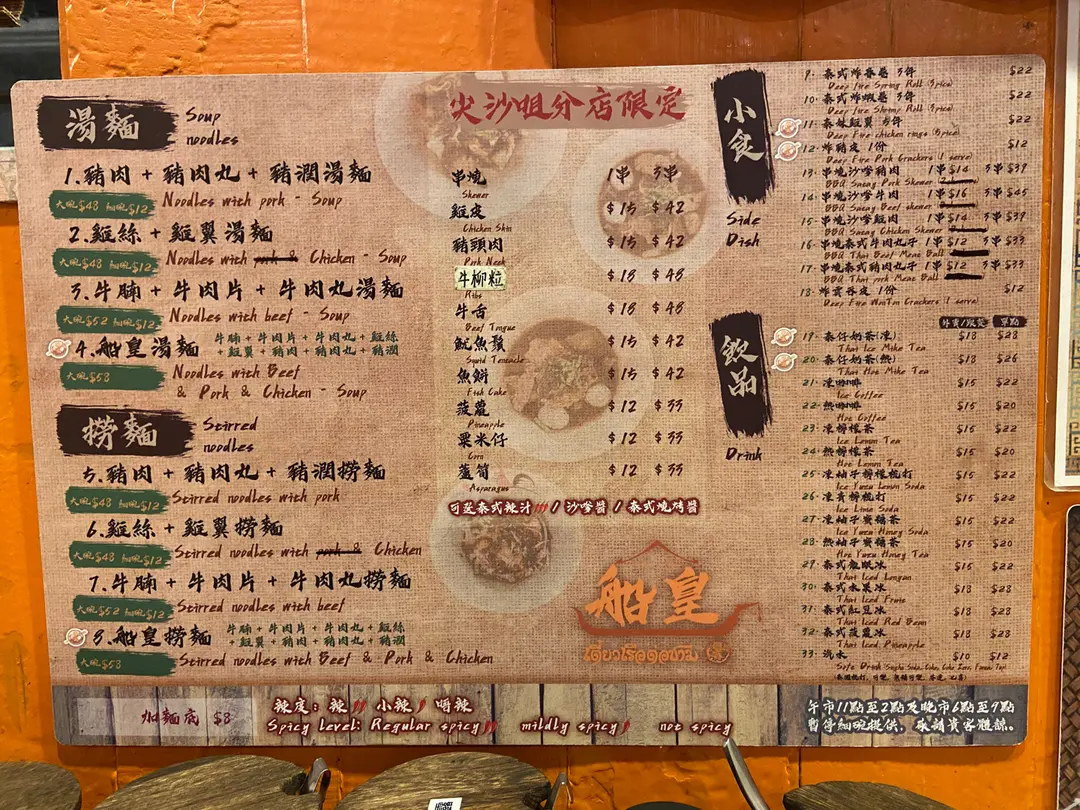 湯麵 Soup noodles
1.豬肉 + 豬肉丸 + 豬潤湯麵
大碗$48 細碗$12 Noodles with pork - Soup
2.雞絲 + 雞翼湯麵
大碗$48 細碗$12 Noodles with pork & Chicken - Soup
3.牛腩 + 牛肉片 + 牛肉丸湯麵
大碗$52 細碗$12 Noodles with beef - Soup
4.船皇湯麵 牛腩 + 牛肉片 + 牛肉丸 + 雞絲
+ 雞翼 + 豬肉 + 豬肉丸 + 豬潤
大碗$58 Noodles with Beef
& Pork & Chicken - Soup
撈麵 Stirred noodles
5.豬肉 + 豬肉丸 + 豬潤撈麵
大碗$48 細碗$12 Stirred noodles with pork
6.雞絲 + 雞翼撈麵
大碗$48 細碗$12 Stirred noodles with pork & Chicken
7.牛腩 + 牛肉片 + 牛肉丸撈麵
大碗$52 細碗$12 Stirred noodles with beef
8.船皇撈麵 牛腩 + 牛肉片 + 牛肉丸 + 雞絲
+ 雞翼 + 豬肉 + 豬肉丸 + 豬潤
大碗$58 Stirred noodles with Beef & Pork & Chicken
加麵底 $8
尖沙咀分店限定
串燒 1串 3串
Skewer
雞皮 $15 $42
Chicken Skin
豬頸肉 $15 $42
Pork Neck
牛柳粒 $18 $48
Ribs
牛舌 $18 $48
Beef Tongue
魷魚鬚 $15 $42
Squid Tentacle
魚餅 $15 $42
Fish Cake
菠蘿 $12 $33
Pineapple
粟米仔 $12 $33
Corn
蘆筍 $12 $33
Asparagus
可選泰式辣汁 / 沙嗲醬 / 泰式燒烤醬
船皇
辣度: 辣 小辣 唔辣
Spicy level: Regular spicy mildly spicy not spicy
小食
Side Dish
9. 泰式炸春卷 3件 $22
Deep Fire Spring Roll (3pics)
10. 泰式炸蝦卷 3件 $22
Deep fire Shrimp Roll (3pics)
11. 泰妹雞翼 5件 $22
Deep Fire chicken rings (5pics)
12. 炸豬皮 1份 $12
Deep Fire Pork Crackers (1 serve)
13. 串燒沙嗲豬肉 1串 $14 3串 $39
BBQ Satay Pork Skewer
14. 串燒沙嗲牛肉 1串 $16 3串 $45
BBQ Satay Beef skewer
15. 串燒沙嗲雞肉 1串 $14 3串 $39
BBQ Satay Chicken Skewer
16. 串燒泰式牛肉丸子 1串 $12 3串 $33
BBQ Thai Beef Meat Ball
17. 串燒泰式豬肉丸子 1串 $12 3串 $33
BBQ Thai pork Meat Ball
18. 炸雲吞皮 1份 $12
Deep Fire WonTon Crackers (1 serve)
飲品
Drink
外賣/跟餐 單點
19. 泰仔奶茶(凍) $18 $28
Thai Ice Milk Tea
20. 泰仔奶茶(熱) $18 $26
Thai Hot Milk Tea
21. 凍咖啡 $15 $22
Ice Coffee
22. 熱咖啡 $15 $20
Hot Coffee
23. 凍檸檬茶 $15 $22
Ice Lemon Tea
24. 熱檸檬茶 $15 $20
Hot Lemon Tea
25. 凍柚子檸檬梳打 $15 $22
Ice Yuzu Lemon Soda
26. 凍青檸梳打 $15 $22
Ice Lime Soda
27. 凍柚子蜜糖茶 $15 $22
Ice Yuzu Honey Soda
28. 熱柚子蜜糖茶 $15 $20
Hot Yuzu Honey Tea
29. 泰式龍眼冰 $15 $22
Thai Iced Longan
30. 泰式水果冰 $18 $28
Thai Iced Fruits
31. 泰式紅豆冰 $18 $28
Thai Iced Red Bean
32. 泰式菠蘿冰 $18 $28
Thai Iced Pineapple
33. 汽水 $10 $12
午市11點至2點及晚市6點至9點
暫停細碗提供, 敬請貴客體諒。